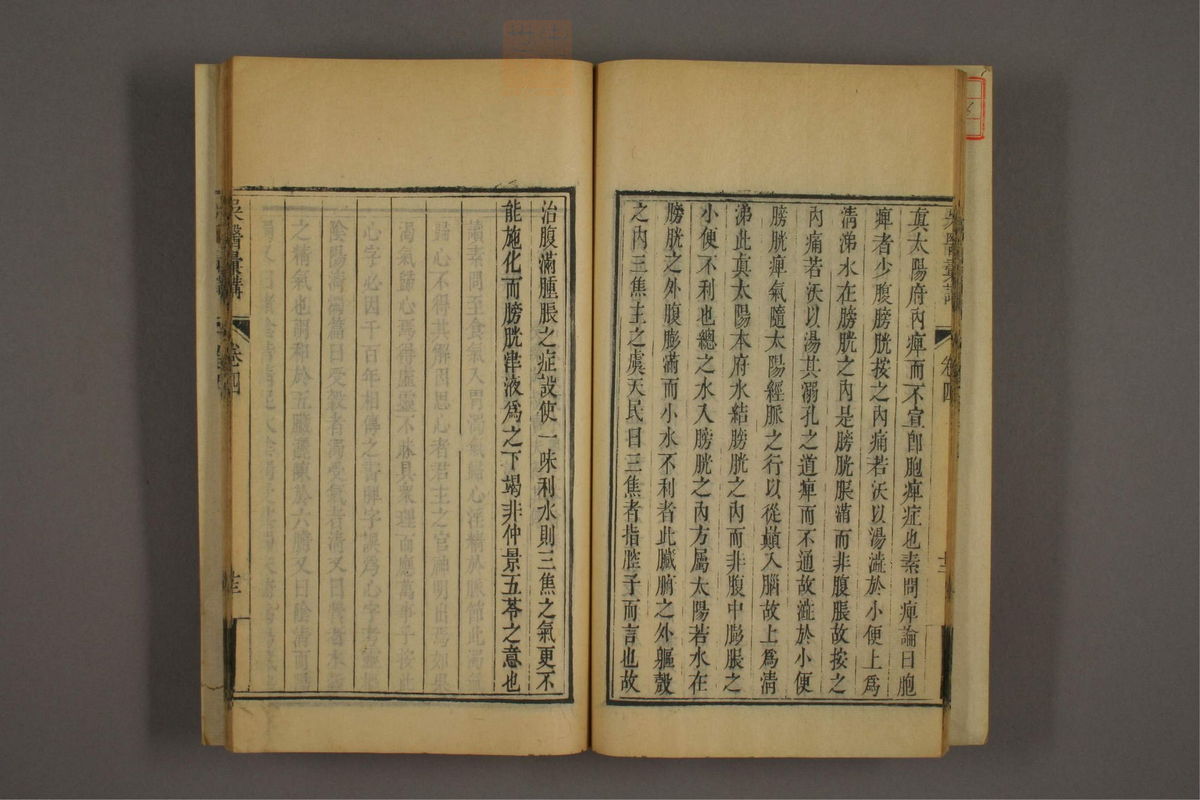 眞太陽府內痺而不宣卽胞痺症也素問痺論曰胞
痺者少腹膀胱按之內痛若沃以湯澁於小便上爲
淸涕水在膀胱之內是膀胱脹滿而非腹脹故按之
內痛若沃以湯其溺孔之道痺而不通故澁於小便
膀胱痺氣隨太陽經脈之行以從巔入腦故上爲淸
涕此眞太陽本府水結膀胱之內而非腹中膨脹之
小便不利也總之水入膀胱之內方屬太陽若水在
膀胱之外腹膨滿而小水不利者此臟腑之外軀殼
之內三焦主之虞天民曰三焦者指腔子而言也故
治腹滿腫脹之症設使一味利水則三焦之氣更不
能施化而膀胱津液爲之下竭非仲景五苓之意也
吳醫彙講
卷四